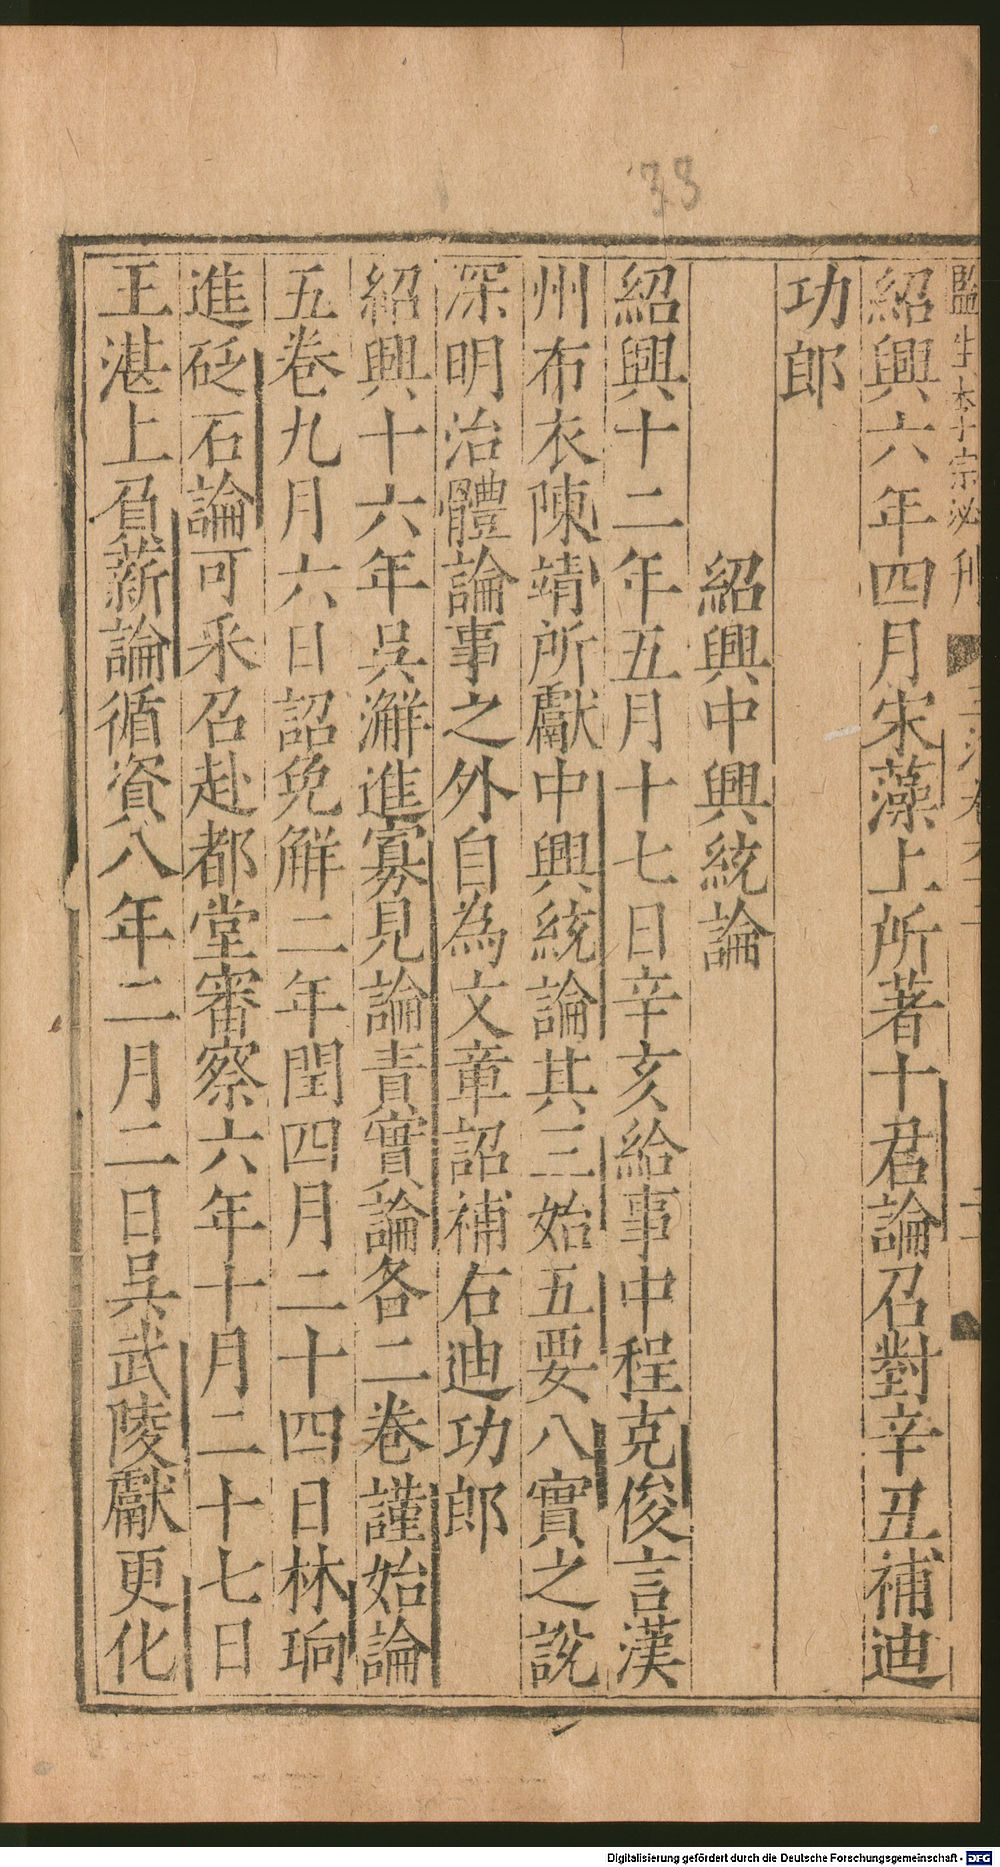 33
監生李宗泌刊
紹興六年四月宋藻上所著十君論召對辛丑補迪
功郎
紹興中興統論
紹興十二年五月十七日辛亥給事中程克俊言漢
州布衣陳靖所獻中興統論其三始五要八實之說
深明治體論事之外自為文章詔補右迪功郎
紹興十六年吳澥進寡見論責實論各二卷謹始論
五卷九月六日詔免解二年閏四月二十四日林珦
進砭石論可采召赴都堂審察六年十月二十七日
王湛上負薪論循資八年二月二日吳武陵獻更化
Digitalisierung gefördert durch die Deutsche Forschungsgemeinschaft - DFG